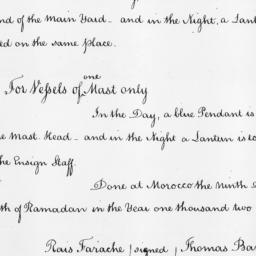 nd of the Main Yard – and in the Night, a Lant
ed on the same place.
For Vessels of one Mast only
In the Day, a blue Pendant is
e Mast Head – and in the Night a Lantern is to
the Ensign Staff.
Done at Morocco the ninth
th of Ramadan in the Year one thousand two
Rais Farache / signed / Thomas Ba